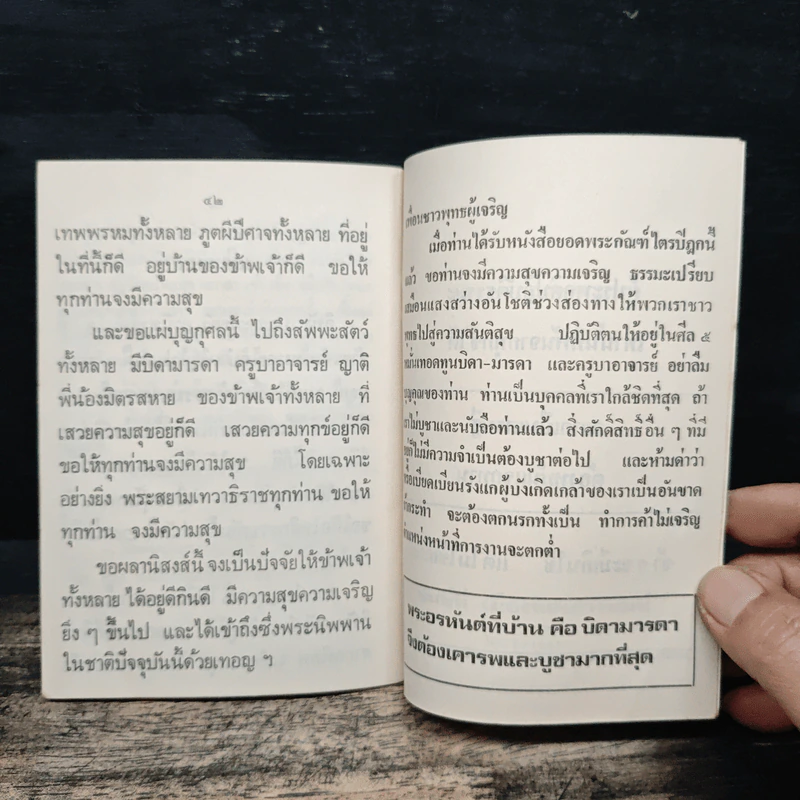 ๔๒
เทพพรหมทั้งหลาย ภูตผีปีศาจทั้งหลาย ที่อยู่
ในที่นี้ก็ดี อยู่บ้านของข้าพเจ้าก็ดี ขอให้
ทุกท่านจงมีความสุข
และขอแผ่บุญกุศลนี้ ไปถึงสัพพะสัตว์
ทั้งหลาย มีบิดามารดา ครูบาอาจารย์ ญาติ
พี่น้องมิตรสหาย ของข้าพเจ้าทั้งหลาย ที่
เสวยความสุขอยู่ก็ดี เสวยความทุกข์อยู่ก็ดี
ขอให้ทุกท่านจงมีความสุข โดยเฉพาะ
อย่างยิ่ง พระสยามเทวาธิราชทุกท่าน ขอให้
ทุกท่าน จงมีความสุข
ขอผลานิสงส์นี้ จงเป็นปัจจัยให้ข้าพเจ้า
ทั้งหลาย ได้อยู่ดีกินดี มีความสุขความเจริญ
ยิ่ง ๆ ขึ้นไป และได้เข้าถึงซึ่งพระนิพพาน
ในชาติปัจจุบันนี้ด้วยเทอญ ฯ
เพื่อนชาวพุทธผู้เจริญ
เมื่อท่านได้รับหนังสือยอดพระกัณฑ์ไตรปิฎกนี้
แล้ว ขอท่านจงมีความสุขความเจริญ ธรรมะเปรียบ
เสมือนแสงสว่างอันโชติช่วงส่องทางให้พวกเราชาว
พุทธไปสู่ความสันติสุข ปฏิบัติตนให้อยู่ในศีล ๕
หมั่นเทอดทูนบิดา-มารดา และครูบาอาจารย์ อย่าลืม
บุญคุณของท่าน ท่านเป็นบุคคลที่เราใกล้ชิดที่สุด ถ้า
เราไม่บูชาและนับถือท่านแล้ว สิ่งศักดิ์สิทธิ์อื่น ๆ ที่มี
ก็ไม่มีความจำเป็นต้องบูชาต่อไป และห้ามด่าว่า
หรือเบียดเบียนรังแกผู้บังเกิดเกล้าของเราเป็นอันขาด
ถ้ากระทำ จะต้องตกนรกทั้งเป็น ทำการค้าไม่เจริญ
ตำแหน่งหน้าที่การงานจะตกต่ำ
พระอรหันต์ที่บ้าน คือ บิดามารดา
จึงต้องเคารพและบูชามากที่สุด